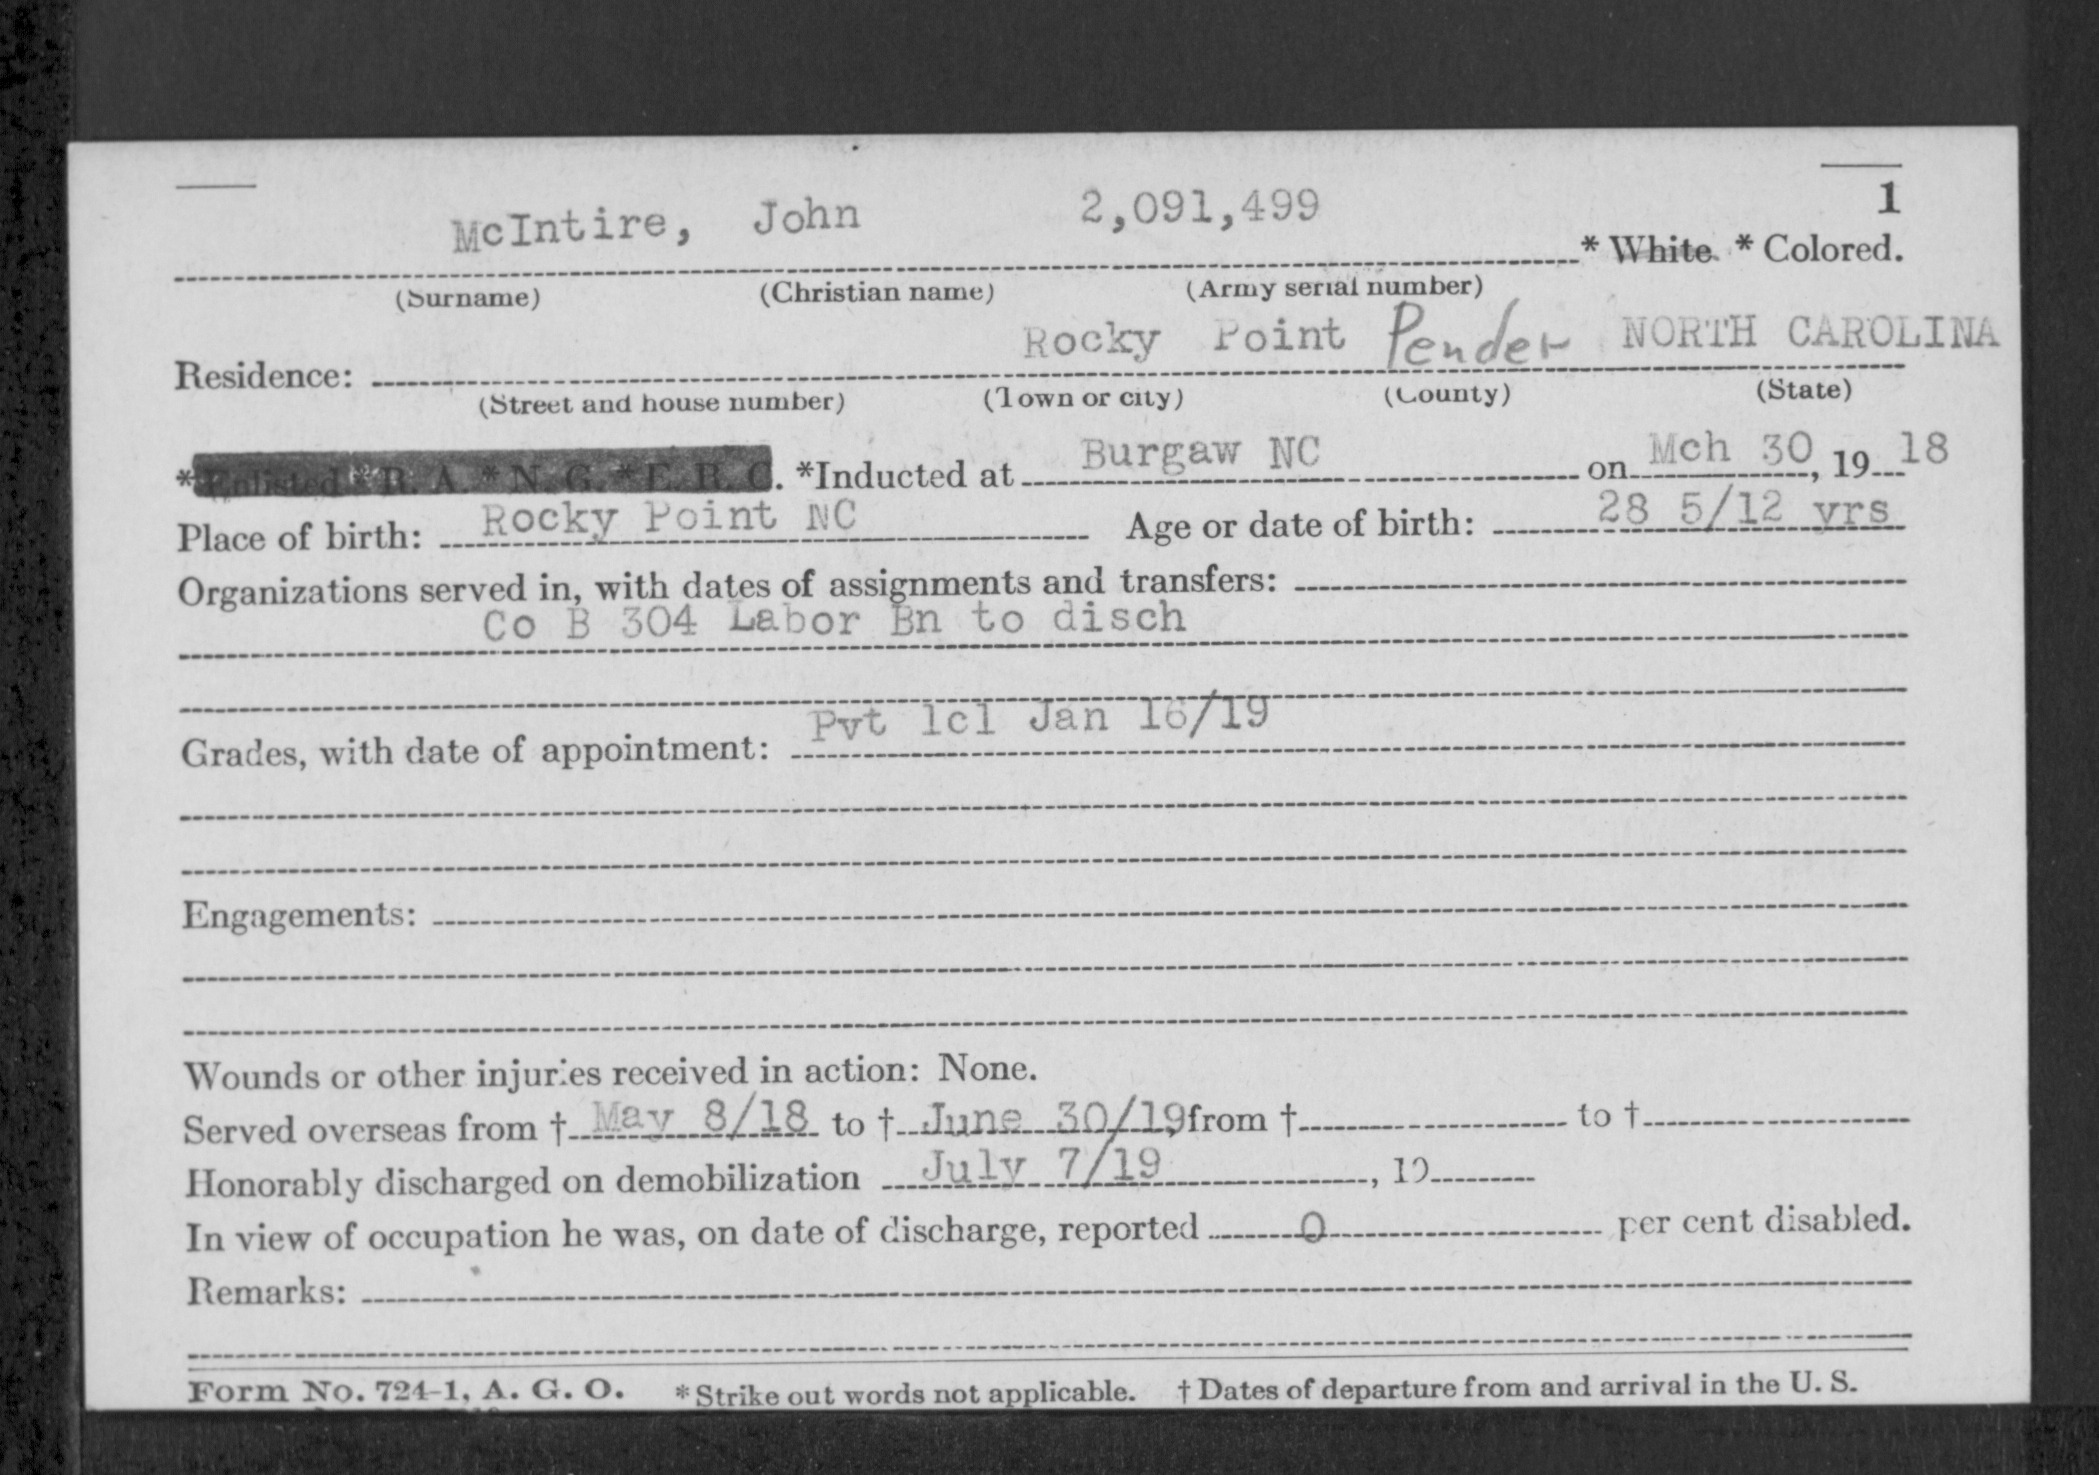 1
McIntire, John 2,091,499 * White. * Colored.
(Surname) (Christian name) (Army serial number)
Residence: Rocky Point Pender NORTH CAROLINA
(Street and house number) (Town or city) (County) (State)
*Enlisted * R. A. * N. G. * E. R. C. *Inducted at Burgaw NC on Mch 30, 19 18
Place of birth: Rocky Point NC Age or date of birth: 28 5/12 yrs
Organizations served in, with dates of assignments and transfers:
Co B 304 Labor Bn to disch
Grades, with date of appointment: Pvt 1cl Jan 16/19
Engagements:
Wounds or other injuries received in action: None.
Served overseas from † May 8/18 to † June 30/19, from † to †
Honorably discharged on demobilization July 7/19, 19
In view of occupation he was, on date of discharge, reported 0 per cent disabled.
Remarks:
Form No. 724-1, A. G. O. * Strike out words not applicable. † Dates of departure from and arrival in the U. S.